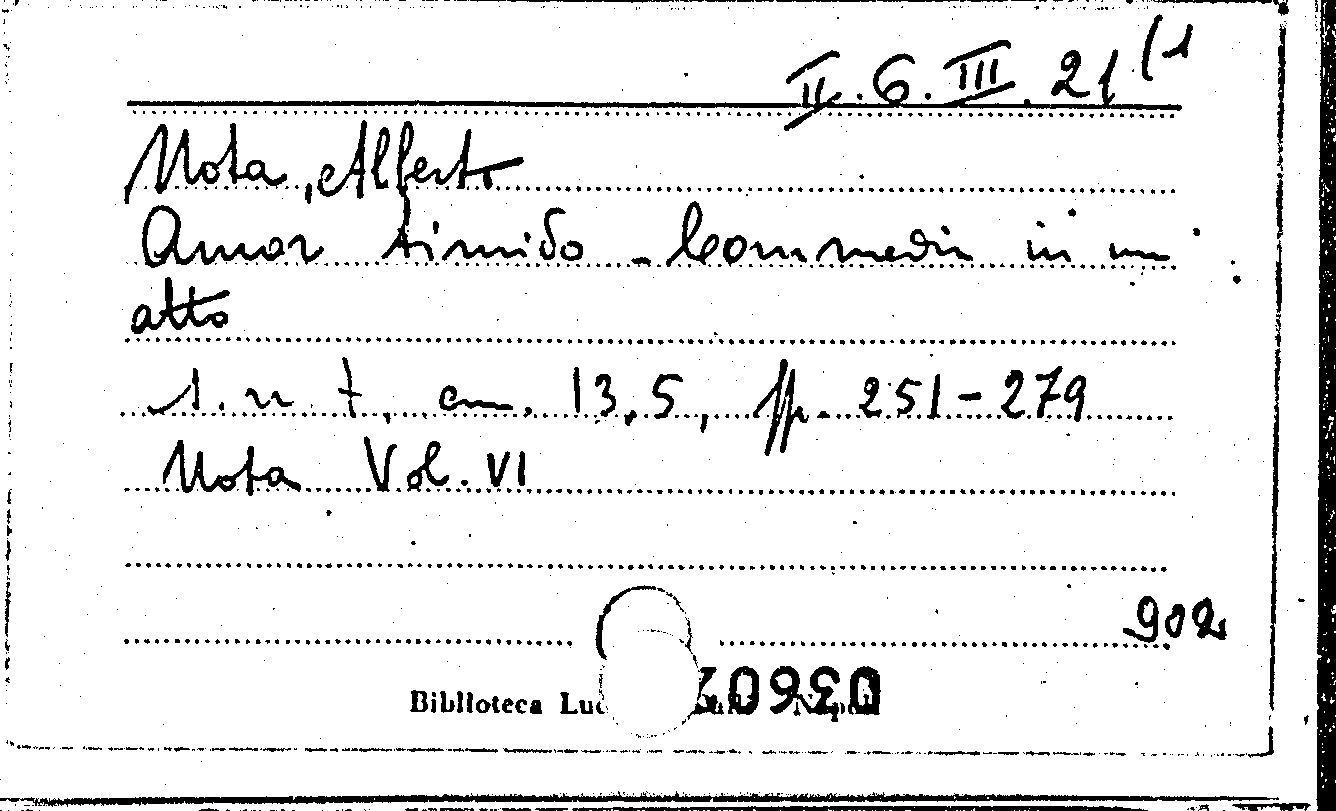 II. 6. III. 21 (1
Nota, Alberto
Amor timido - Commedia in un
atto
s. n. t., cm. 13,5, pp. 251-279
Nota Vol. VI
902
Biblioteca